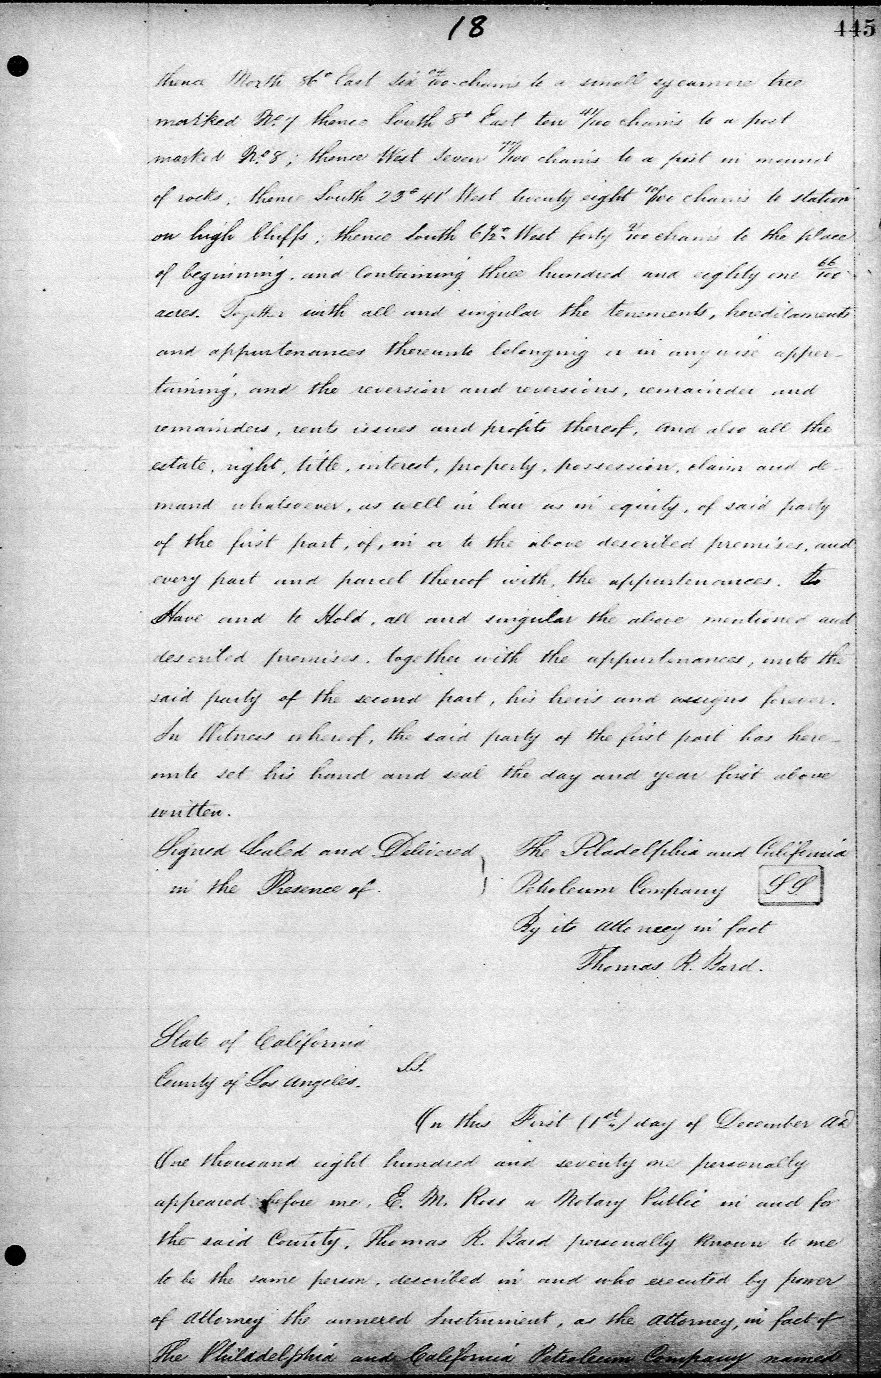 18
445
thence North 86° East six /100 chains to a small sycamore tree
marked No. 7 thence South 8° East ten 41/100 chains to a post
marked No. 8; thence West seven /100 chains to a post in mound
of rocks; thence South 23° 41' West twenty eight /100 chains to station
on high bluffs; thence South 6 1/2° West forty /100 chains to the place
of beginning, and containing three hundred and eighty one 66/100
acres. Together with all and singular the tenements, hereditaments
and appurtenances thereunto belonging or in any wise apper-
taining, and the reversion and reversions, remainder and
remainders, rents issues and profits thereof, and also all the
estate, right, title, interest, property, possession, claim and de-
mand whatsoever, as well in law as in equity, of said party
of the first part, of, in or to the above described premises, and
every part and parcel thereof with, the appurtenances. To
Have and to Hold, all and singular the above mentioned and
described premises, together with the appurtenances, unto the
said party of the second part, his heirs and assigns forever.
In Witness whereof, the said party of the first part has here-
unto set his hand and seal the day and year first above
written.
Signed Sealed and Delivered
in the Presence of.
The Piladelphia and California
Petroleum Company LS
By its attorney in fact
Thomas R. Bard.
State of California
County of Los Angeles. S.S.
On this First (1st) day of December AD
One thousand eight hundred and seventy one personally
appeared before me, E. M. Ross a Notary Public in and for
the said County, Thomas R. Bard personally known to me
to be the same person, described in and who executed by power
of attorney the annexed Instrument, as the attorney, in fact of
The Philadelphia and California Petroleum Company named